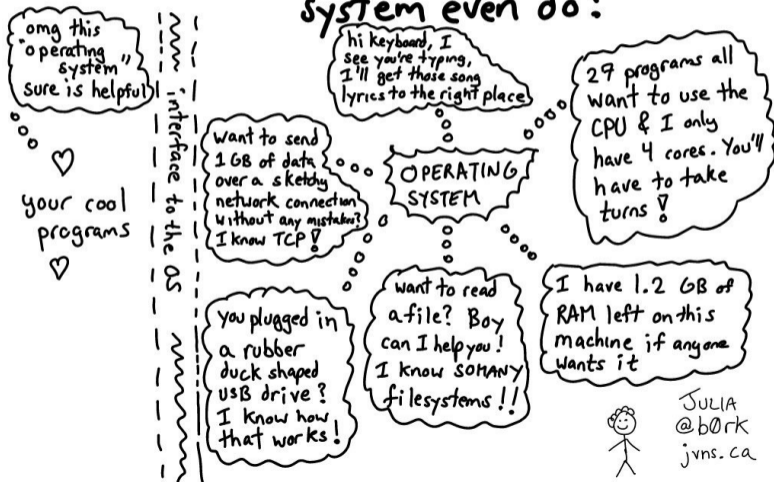 system even do?
omg this
"operating
system"
sure is helpful!
your cool
programs
interface to the OS
hi keyboard, I
see you're typing,
I'll get those song
lyrics to the right place
29 programs all
want to use the
CPU & I only
have 4 cores. You'll
have to take
turns!
want to send
1 GB of data
over a sketchy
network connection
without any mistakes?
I know TCP!
OPERATING
SYSTEM
you plugged in
a rubber
duck shaped
USB drive?
I know how
that works!
want to read
a file? Boy
can I help you!
I know SO MANY
filesystems!!
I have 1.2 GB of
RAM left on this
machine if anyone
wants it
JULIA
@b0rk
jvns.ca